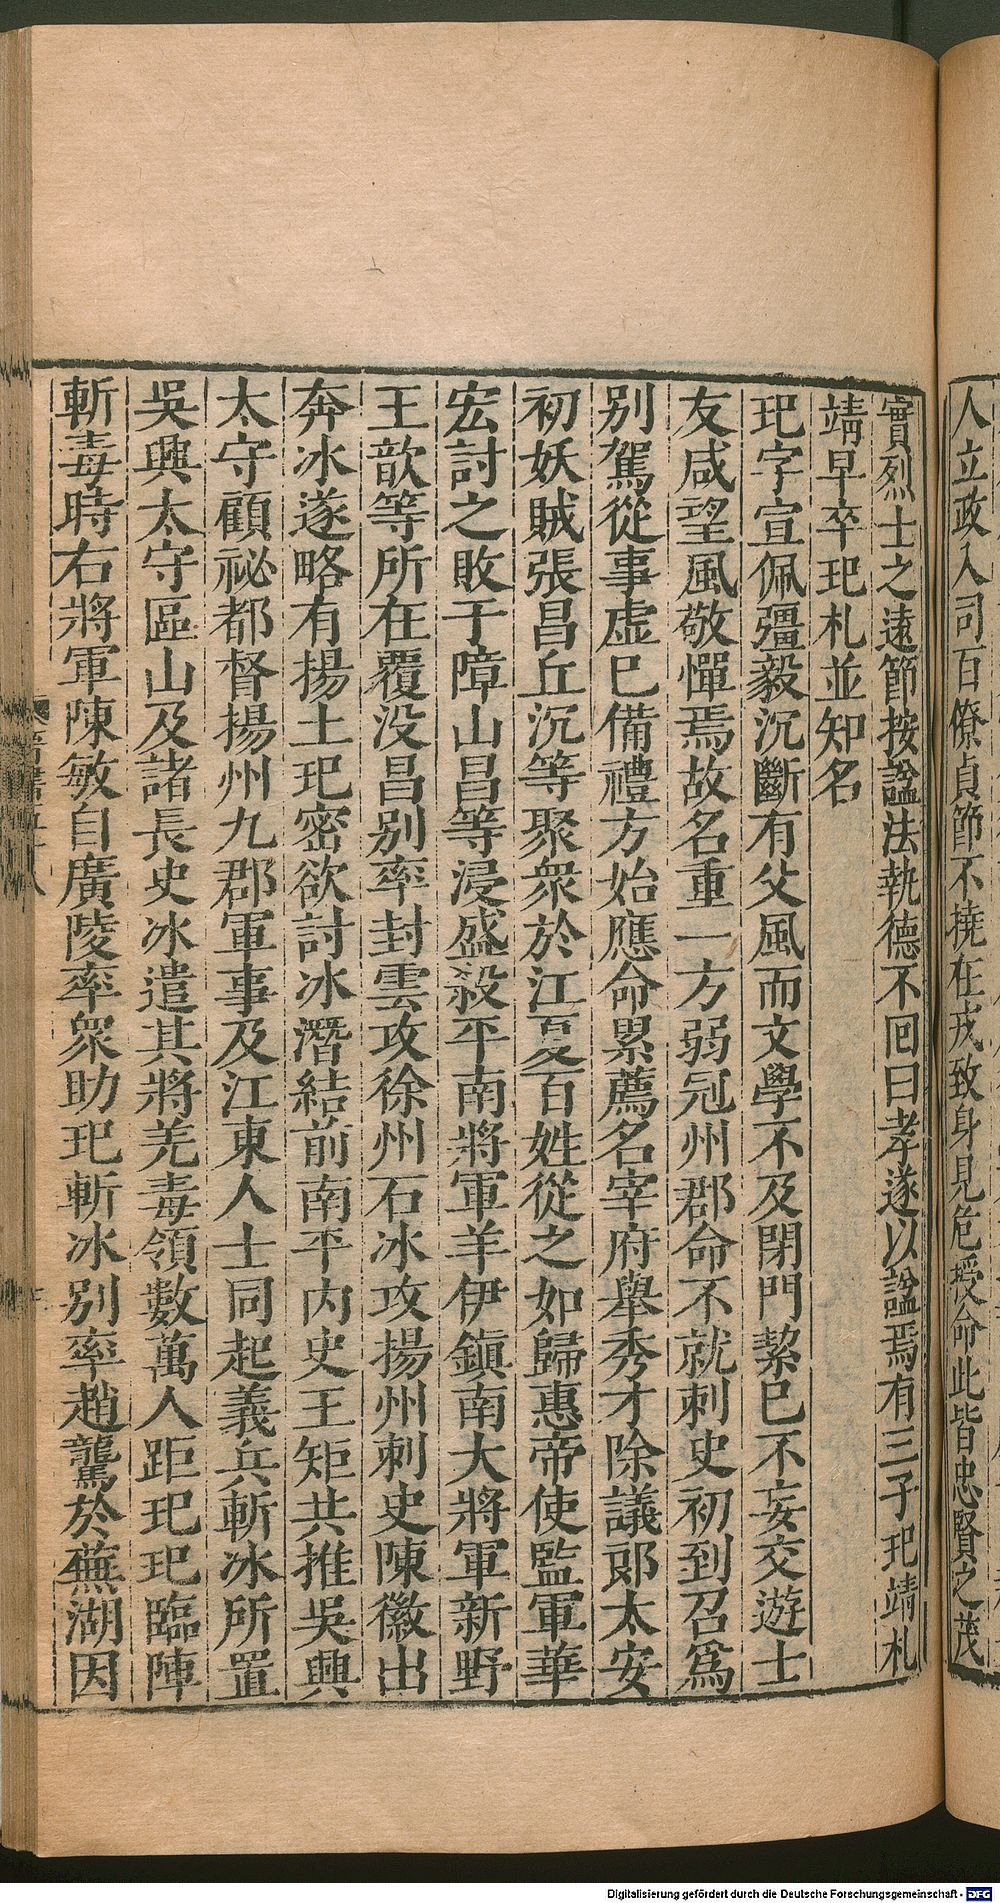 人立政入司百僚貞節不撓在戎致身見危授命此皆忠賢之茂
實烈士之遠節按諡法執德不回曰孝遂以諡焉有三子玘靖札
靖早卒玘札並知名
玘字宣佩彊毅沉斷有父風而文學不及閉門潔巳不妄交遊士
友咸望風敬憚焉故名重一方弱冠州郡命不就刺史初到召爲
別駕從事虚巳備禮方始應命累薦名宰府舉秀才除議郎太安
初妖賊張昌丘沉等聚衆於江夏百姓從之如歸惠帝使監軍華
宏討之敗于障山昌等浸盛殺平南將軍羊伊鎭南大將軍新野
王歆等所在覆没昌別率封雲攻徐州石冰攻揚州刺史陳徽出
奔冰遂略有揚土玘密欲討冰潛結前南平内史王矩共推吳興
太守顧祕都督揚州九郡軍事及江東人士同起義兵斬冰所置
吳興太守區山及諸長史冰遣其將羌毒領數萬人距玘玘臨陣
斬毒時右將軍陳敏自廣陵率衆助玘斬冰別率趙驡於蕪湖因
Digitalisierung gefördert durch die Deutsche Forschungsgemeinschaft - DFG